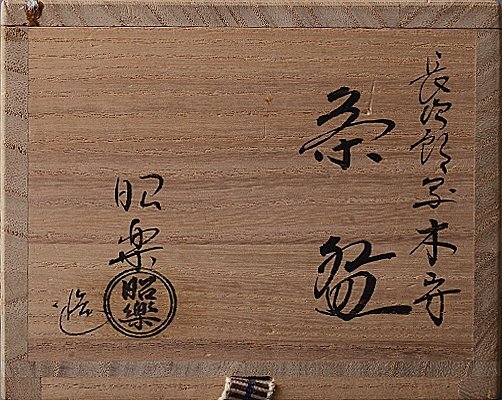 長次郎写木守
茶盌
昭楽
造
昭樂